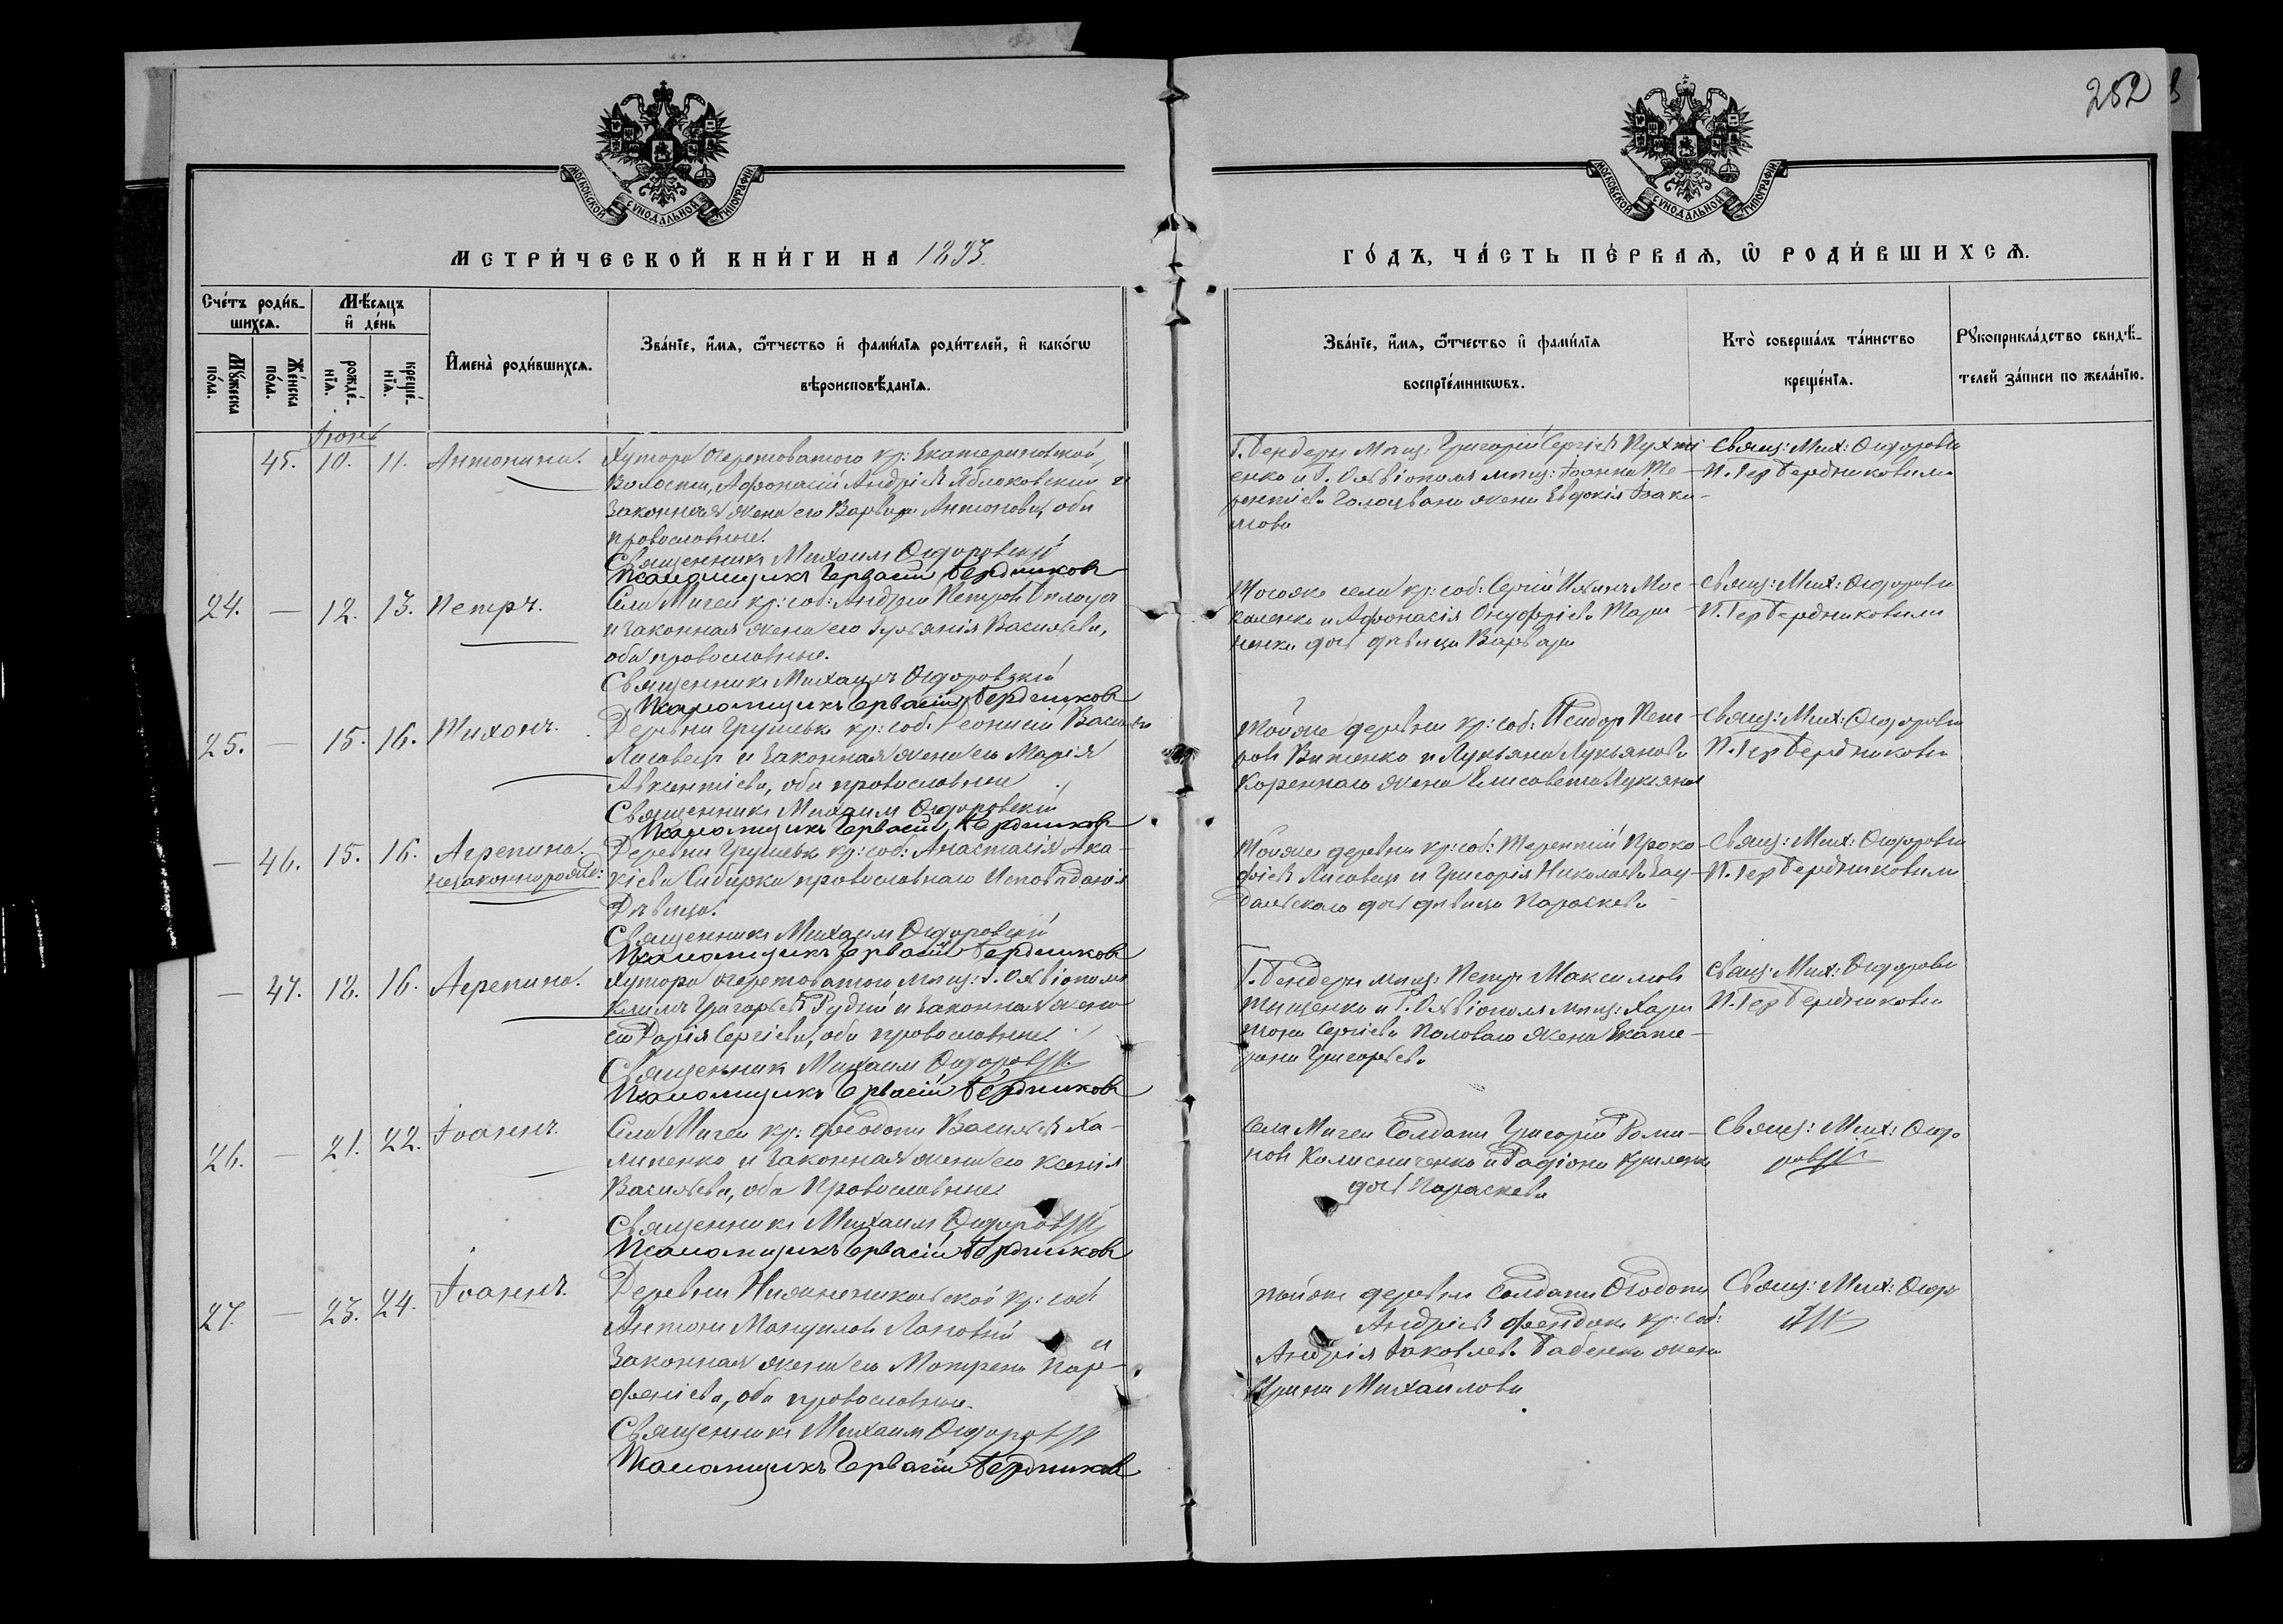 282
МОСКОВСКОЙ СѴНОДАЛЬНОЙ ТИПОГРАФІИ
МОСКОВСКОЙ СѴНОДАЛЬНОЙ ТИПОГРАФІИ
МЕТРИ́ЧЕСКОЙ КНИ́ГИ НА 1893
ГО́ДЪ, ЧА́СТЬ ПЕ́РВАѦ, Ѿ РОДИ́ВШИХСѦ.
Сче́тъ роди́в-
шихсѧ.
Мꙋ́жеска по́ла.
Же́нска по́ла.
Мѣ́сѧцъ
и҆ де́нь
рожде́-
нїѧ.
креще́-
нїѧ.
И҆мена̀ роди́вшихсѧ.
Зва́нїе, и҆́мѧ, ѻ҆́тчество и҆ фами́лїѧ роди́телей, и҆ како́гѡ
вѣроисповѣ́данїѧ.
Зва́нїе, и҆́мѧ, ѻ҆́тчество и҆ фами́лїѧ
воспрїе́мникѡвъ.
Кто̀ соверша́лъ та́инство
креще́нїѧ.
Рꙋкоприкла́дство свидѣ́-
телей за́писи по жела́нїю.
Іюнь
45. 10. 11. Антонина.
Хутора Очеретоватого кр: Екатериновской
Волости, Афонасій Андріевъ Яблоковскій и
законная жена его Варвара Антонова, оба
православные.
Священникъ Михаилъ Ѳедоровскій
Псаломщикъ Гервасій Бердниковъ
Г. Бендеры мѣщ: Григорій Сергіевъ
енко и Г. Ольвіополя мѣщ: Іоанна Те-
рентіева жена Евдокія Іоаки-
мова
Свящ: Мих: Ѳедоровск
П. Гер Бердниковымъ
24. — 12. 13. Петръ.
Села Мигеи кр: соб: Андрей Петровъ
и законная жена его Васильева,
оба православные.
Священникъ Михаилъ Ѳедоровскій
Псаломщикъ Гервасій Бердниковъ
Тогоже села кр: соб: Сергій Мос-
каленко и Афонасія Онуфріева Мари
ненка дочь дѣвица Варвара
Свящ: Мих: Ѳедоровск
П. Гер Бердниковымъ
25. — 15. 16. Тихонъ.
Деревни Грушевки кр: соб: Леонтій Васильевъ
Лисовецъ и законная жена его Марія
Авксентіева, оба православные
Священникъ Михаилъ Ѳедоровскій
Псаломщикъ Гервасій Бердниковъ
Тойже деревни кр: соб: Исидоръ Пет-
ровъ и Лукьяна Лукьянова
Кореннаго жена Елисавета Лукьянова
Свящ: Мих: Ѳедоровск
П. Гер Бердниковы
— 46. 15. 16. Агрепина.
незаконнорожд:
Деревни Грушевки кр: соб: Анастасія Ака-
кіева Сибирка православнаго Исповѣданія
Дѣвица.
Священникъ Михаилъ Ѳедоровскій
Псаломщикъ Гервасій Бердниковъ
Тойже деревни кр: соб: Терентій Проко
фіевъ Лисовецъ и Григорія Николаева
дочь дѣвица Параскева
Свящ: Мих: Ѳедоровск
П. Гер Бердниковымъ
— 47. 12. 16. Агрепина.
Хутора Очеретоватого мѣщ: Г. Ольвіополя
Климъ Григорьевъ Рудый и законная жена
его Дарія Сергіева, оба православные.
Священникъ Михаилъ Ѳедоровскій
Псаломщикъ Гервасій Бердниковъ
Г. Бендеры мѣщ: Петръ Максимовъ
Тищенко и Г. Ольвіополя мѣщ: Хари
тона Сергіева Половаго жена Екате-
рина Григорьева
Свящ: Мих: Ѳедоровск
П. Гер Бердниковы
26. — 21. 22. Іоаннъ.
Села Мигеи кр: Феодотъ Васильевъ Ха-
липенко и законная жена его Ксенія
Васильева, оба Православные.
Священникъ Михаилъ Ѳедоровскій
Псаломщикъ Гервасій Бердниковъ
Села Мигеи Солдатъ Григорій Рома-
новъ Колисниченко и
дочь Параскева
Свящ: Мих: Ѳедо
ровскій
27. — 23. 24. Іоаннъ.
Деревни кр: соб
Антонъ Мануиловъ Лановый и
законная жена его Матрена Пар-
феніева, оба православные.
Священникъ Михаилъ Ѳедоровскій
Псаломщикъ Гервасій Бердниковъ
тойже деревни Солдатъ Ѳеодотъ
Андріевъ кр: соб:
Андрія Іаковлева Бабенка жена
Ирина Михаилова
Свящ: Мих: Ѳедор